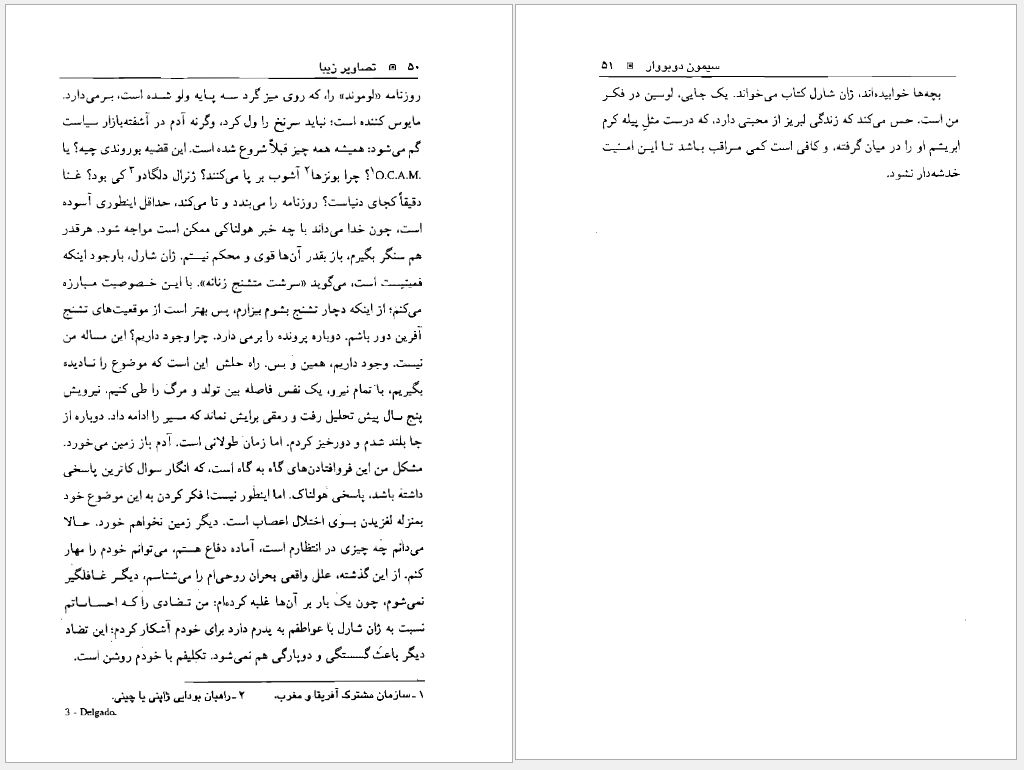 ۵۰ ▣ تصاویر زیبا
روزنامه «لوموند» را، که روی میز گرد سه پایه ولو شده است، برمی‌دارد.
مایوس کننده است؛ نباید سرنخ را ول کرد، وگرنه آدم در آشفته‌بازار سیاست
گم می‌شود: همیشه همه چیز قبلاً شروع شده است. این قضیه بوروندی چیه؟ یا
O.C.A.M.۱؟ چرا بونزها۲ آشوب بر پا می‌کنند؟ ژنرال دلگادو۳ کی بود؟ غنا
دقیقاً کجای دنیاست؟ روزنامه را می‌بندد و تا می‌کند، حداقل اینطوری آسوده
است، چون خدا می‌داند با چه خبر هولناکی ممکن است مواجه شود. هرقدر
هم سنگر بگیرم، باز بقدر آن‌ها قوی و محکم نیستم. ژان شارل، باوجود اینکه
فمینیست است، می‌گوید «سرشت متشنج زنانه». با این خصوصیت مبارزه
می‌کنم؛ از اینکه دچار تشنج بشوم بیزارم، پس بهتر است از موقعیت‌های تشنج
آفرین دور باشم. دوباره پرونده را برمی دارد. چرا وجود داریم؟ این مساله من
نیست. وجود داریم، همین و بس. راه حلش این است که موضوع را نادیده
بگیریم، با تمام نیرو، یک نفس فاصله بین تولد و مرگ را طی کنیم. نیرویش
پنج سال پیش تحلیل رفت و رمقی برایش نماند که مسیر را ادامه داد. دوباره از
جا بلند شدم و دورخیز کردم. اما زمان طولانی است. آدم باز زمین می‌خورد.
مشکل من این فروافتادن‌های گاه به گاه است، که انگار سوال کاترین پاسخی
داشته باشد، پاسخی هولناک. اما اینطور نیست! فکر کردن به این موضوع خود
بمنزله لغزیدن بسوی اختلال اعصاب است. دیگر زمین نخواهم خورد. حالا
می‌دانم چه چیزی در انتظارم است، آماده دفاع هستم، می‌توانم خودم را مهار
کنم. از این گذشته، علل واقعی بحران روحی‌ام را می‌شناسم، دیگر غافلگیر
نمی‌شوم، چون یک بار بر آن‌ها غلبه کرده‌ام: من تضادی را که احساساتم
نسبت به ژان شارل با عواطفم به پدرم دارد برای خودم آشکار کردم؛ این تضاد
دیگر باعث گسستگی و دوپارگی هم نمی‌شود. تکلیفم با خودم روشن است.
۱ ـ سازمان مشترک آفریقا و مغرب. ۲ ـ راهبان بودایی ژاپنی یا چینی.
3 - Delgado.
سیمون دوبووار ▣ ۵۱
بچه‌ها خوابیده‌اند، ژان شارل کتاب می‌خواند. یک جایی، لوسین در فکر
من است. حس می‌کند که زندگی لبریز از محبتی دارد، که درست مثلِ پیله کرم
ابریشم او را در میان گرفته، و کافی است کمی مراقب باشد تا این امنیت
خدشه‌دار نشود.